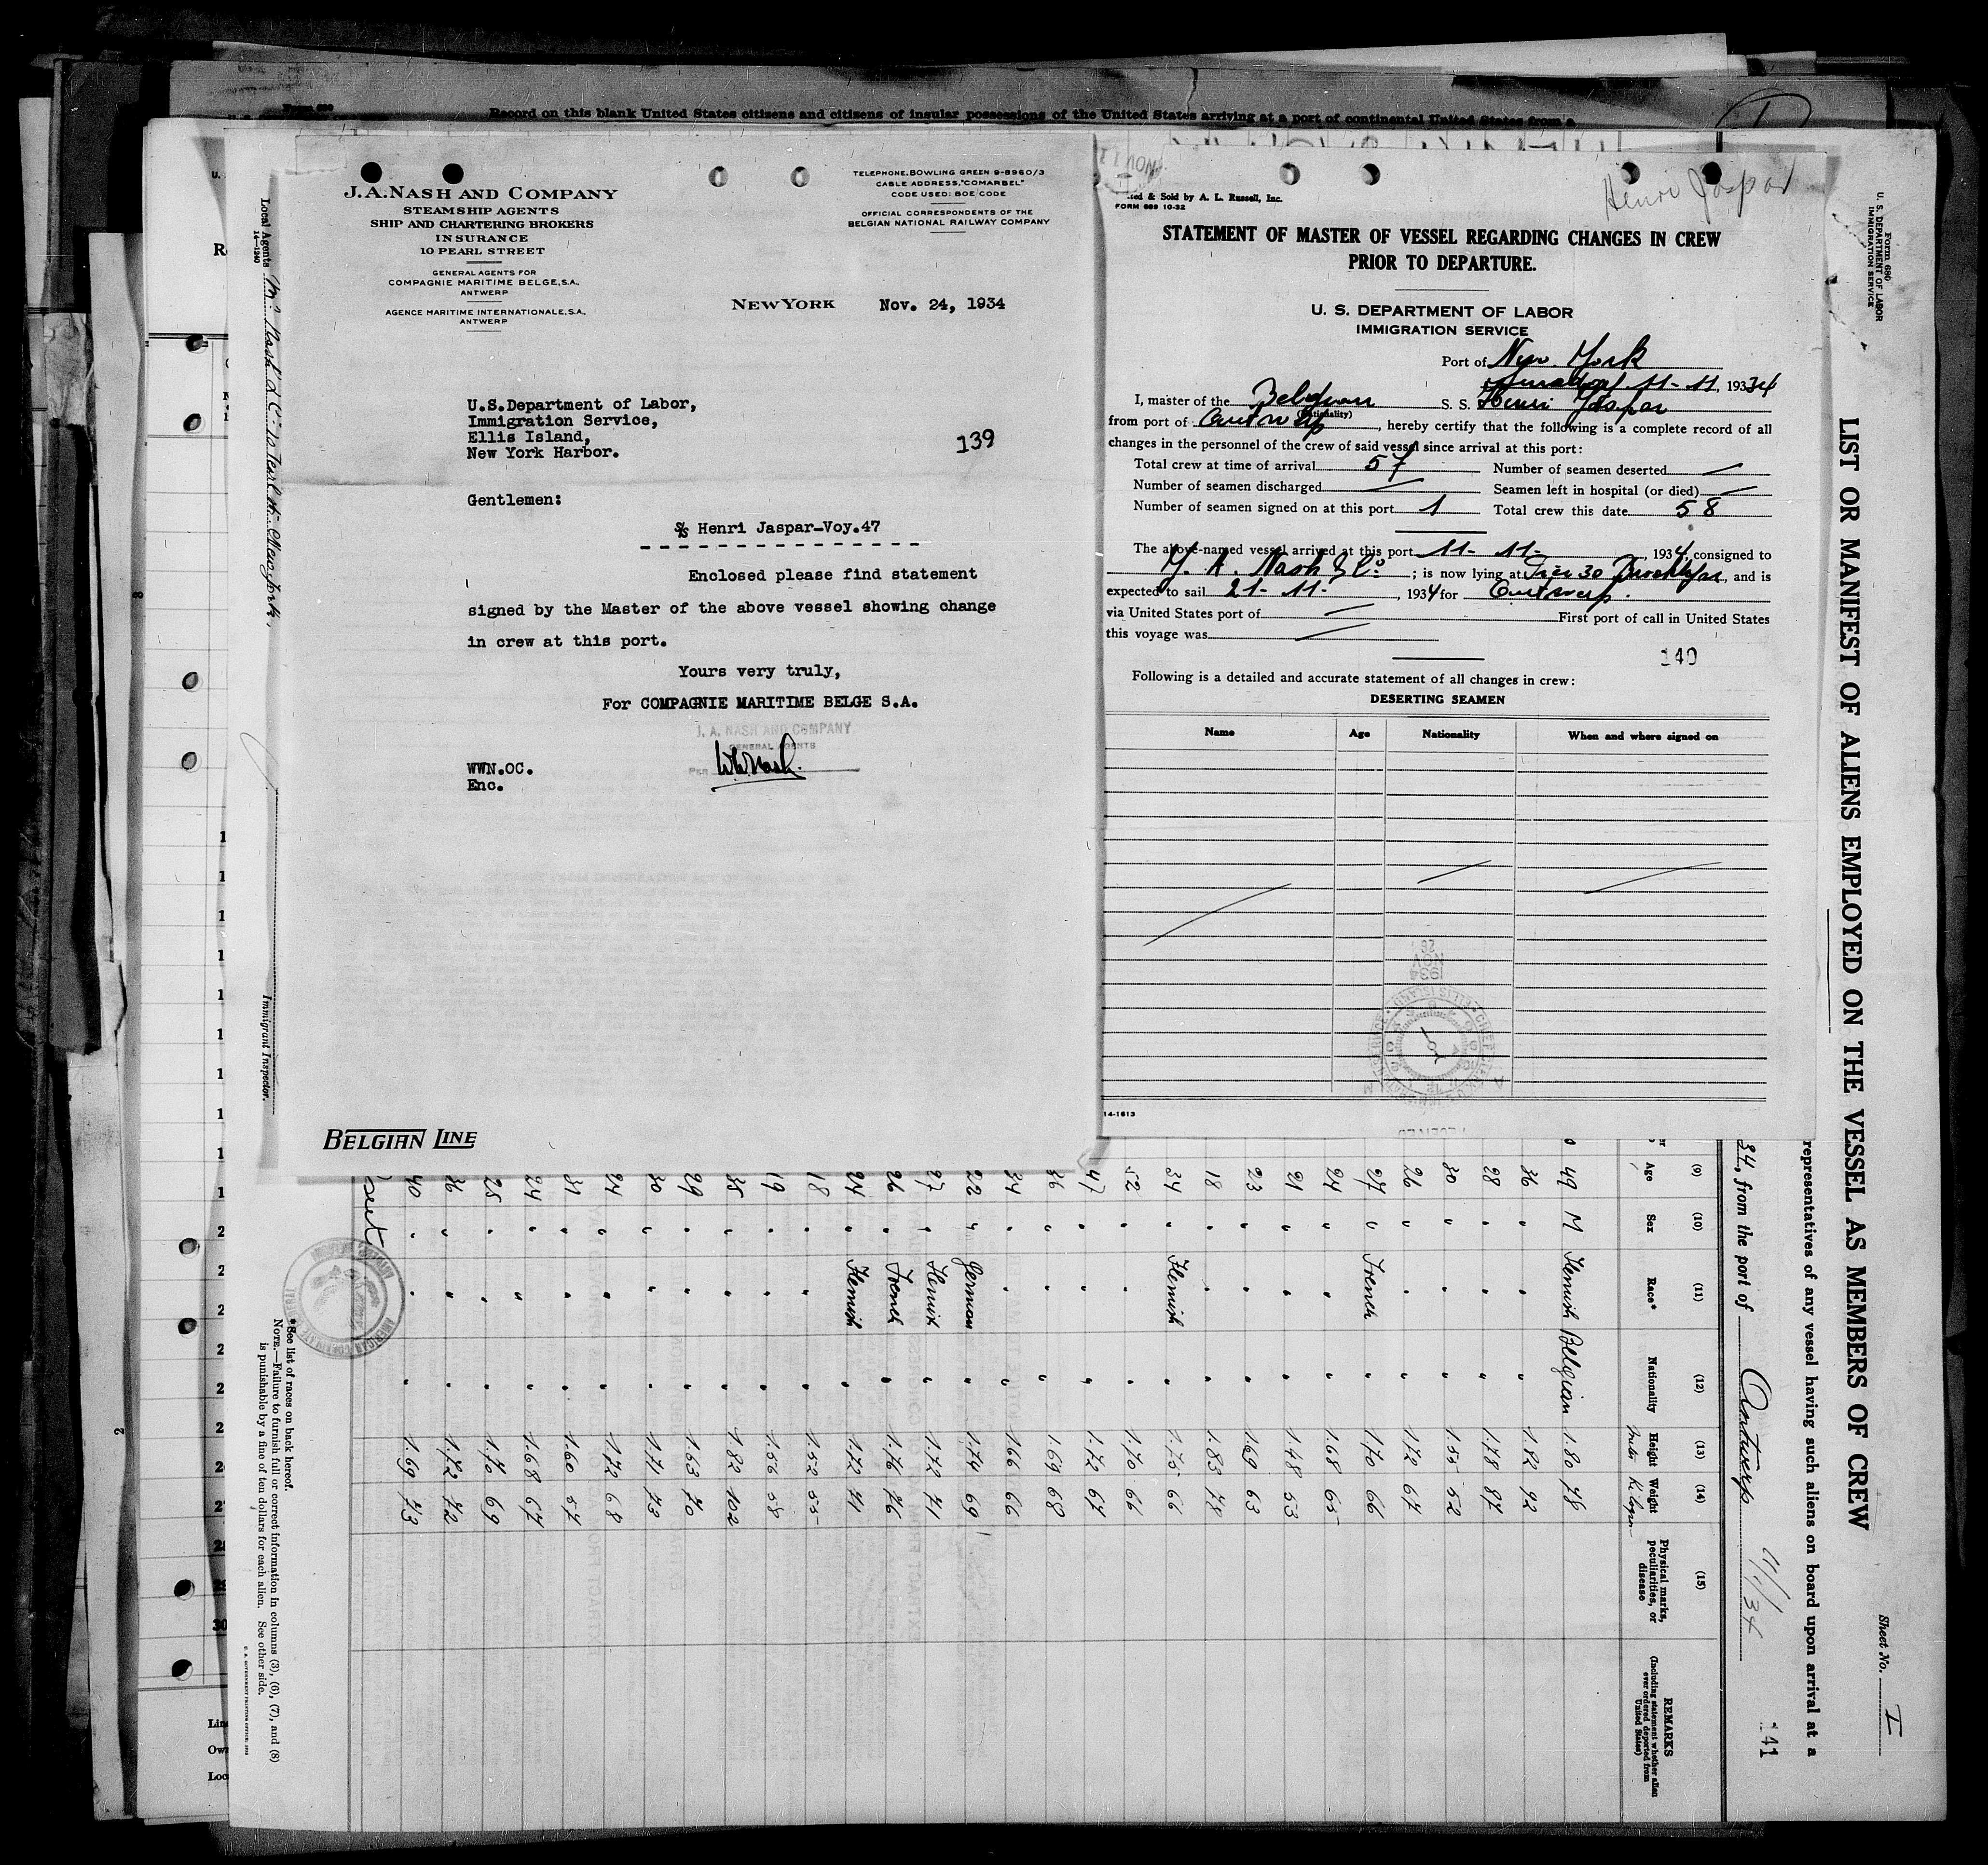 Record on this blank United States citizens and citizens of insular possessions of the United States arriving at a port of continental United States from a
J.A. NASH AND COMPANY
STEAMSHIP AGENTS
SHIP AND CHARTERING BROKERS
INSURANCE
10 PEARL STREET
GENERAL AGENTS FOR
COMPAGNIE MARITIME BELGE, S.A.,
ANTWERP
AGENCE MARITIME INTERNATIONALE, S.A.,
ANTWERP
TELEPHONE, BOWLING GREEN 9-8960/3
CABLE ADDRESS, "COMARBEL"
CODE USED: BOE CODE
OFFICIAL CORRESPONDENTS OF THE
BELGIAN NATIONAL RAILWAY COMPANY
NEW YORK Nov. 24, 1934
U.S.Department of Labor,
Immigration Service,
Ellis Island,
New York Harbor.
139
Gentlemen:
S/S Henri Jaspar-Voy.47
Enclosed please find statement
signed by the Master of the above vessel showing change
in crew at this port.
Yours very truly,
For COMPAGNIE MARITIME BELGE S.A.
J. A. NASH AND COMPANY
GENERAL AGENTS
PER W.W.Nash.
WWN.OC.
Enc.
BELGIAN LINE
Henri Jaspar
& Sold by A. L. Russell, Inc.
FORM 689 10-32
STATEMENT OF MASTER OF VESSEL REGARDING CHANGES IN CREW
PRIOR TO DEPARTURE.
U. S. DEPARTMENT OF LABOR
IMMIGRATION SERVICE
Port of New York
11-11, 1934
I, master of the Belgian S. S. Henri Jaspar
(Nationality)
from port of Antwerp, hereby certify that the following is a complete record of all
changes in the personnel of the crew of said vessel since arrival at this port:
Total crew at time of arrival 57 Number of seamen deserted —
Number of seamen discharged — Seamen left in hospital (or died) —
Number of seamen signed on at this port 1 Total crew this date 58
The above-named vessel arrived at this port 11-11-, 1934, consigned to
J. A. Nash & Co; is now lying at Pier 30 Brooklyn, and is
expected to sail 21-11-, 1934 for Antwerp.
via United States port of — First port of call in United States
this voyage was —
140
Following is a detailed and accurate statement of all changes in crew:
DESERTING SEAMEN
Name Age Nationality When and where signed on
14-1613
Form 680
U. S. DEPARTMENT OF LABOR
IMMIGRATION SERVICE
Sheet No. I
LIST OR MANIFEST OF ALIENS EMPLOYED ON THE VESSEL AS MEMBERS OF CREW
representatives of any vessel having such aliens on board upon arrival at a
34, from the port of Antwerp 11/1/34
141
(9) (10) (11) (12) (13) (14) (15)
Age Sex Race* Nationality Height Weight Physical marks, peculiarities, or disease REMARKS
(Including statement whether alien ever ordered deported from United States)
49 M Flemish Belgian 1.80 78
36 " " " 1.82 92
28 " " " 1.78 87
30 " " " 1.55 52
26 " " " 1.72 67
27 " French " 1.70 66
24 " " " 1.68 65
21 " " " 1.48 53
23 " " " 1.69 63
18 " " " 1.83 78
34 " Flemish " 1.75 66
52 " " " 1.70 66
47 " " " 1.72 67
36 " " " 1.69 68
34 " " " 1.66 66
22 " German " 1.74 69
27 " Flemish " 1.72 71
26 " French " 1.76 76
24 " Flemish " 1.72 71
18 " " " 1.52 55
19 " " " 1.56 58
35 " " " 1.82 102
29 " " " 1.63 70
30 " " " 1.71 73
24 " " " 1.72 68
31 " " " 1.60 57
24 " " " 1.68 67
25 " " " 1.70 69
36 " " " 1.72 72
40 " " " 1.69 73
*See list of races on back hereof.
NOTE.—Failure to furnish full or correct information in columns (3), (6), (7), and (8)
is punishable by a fine of ten dollars for each alien. See other side.
Local Agents
14-1240
Immigrant Inspector.